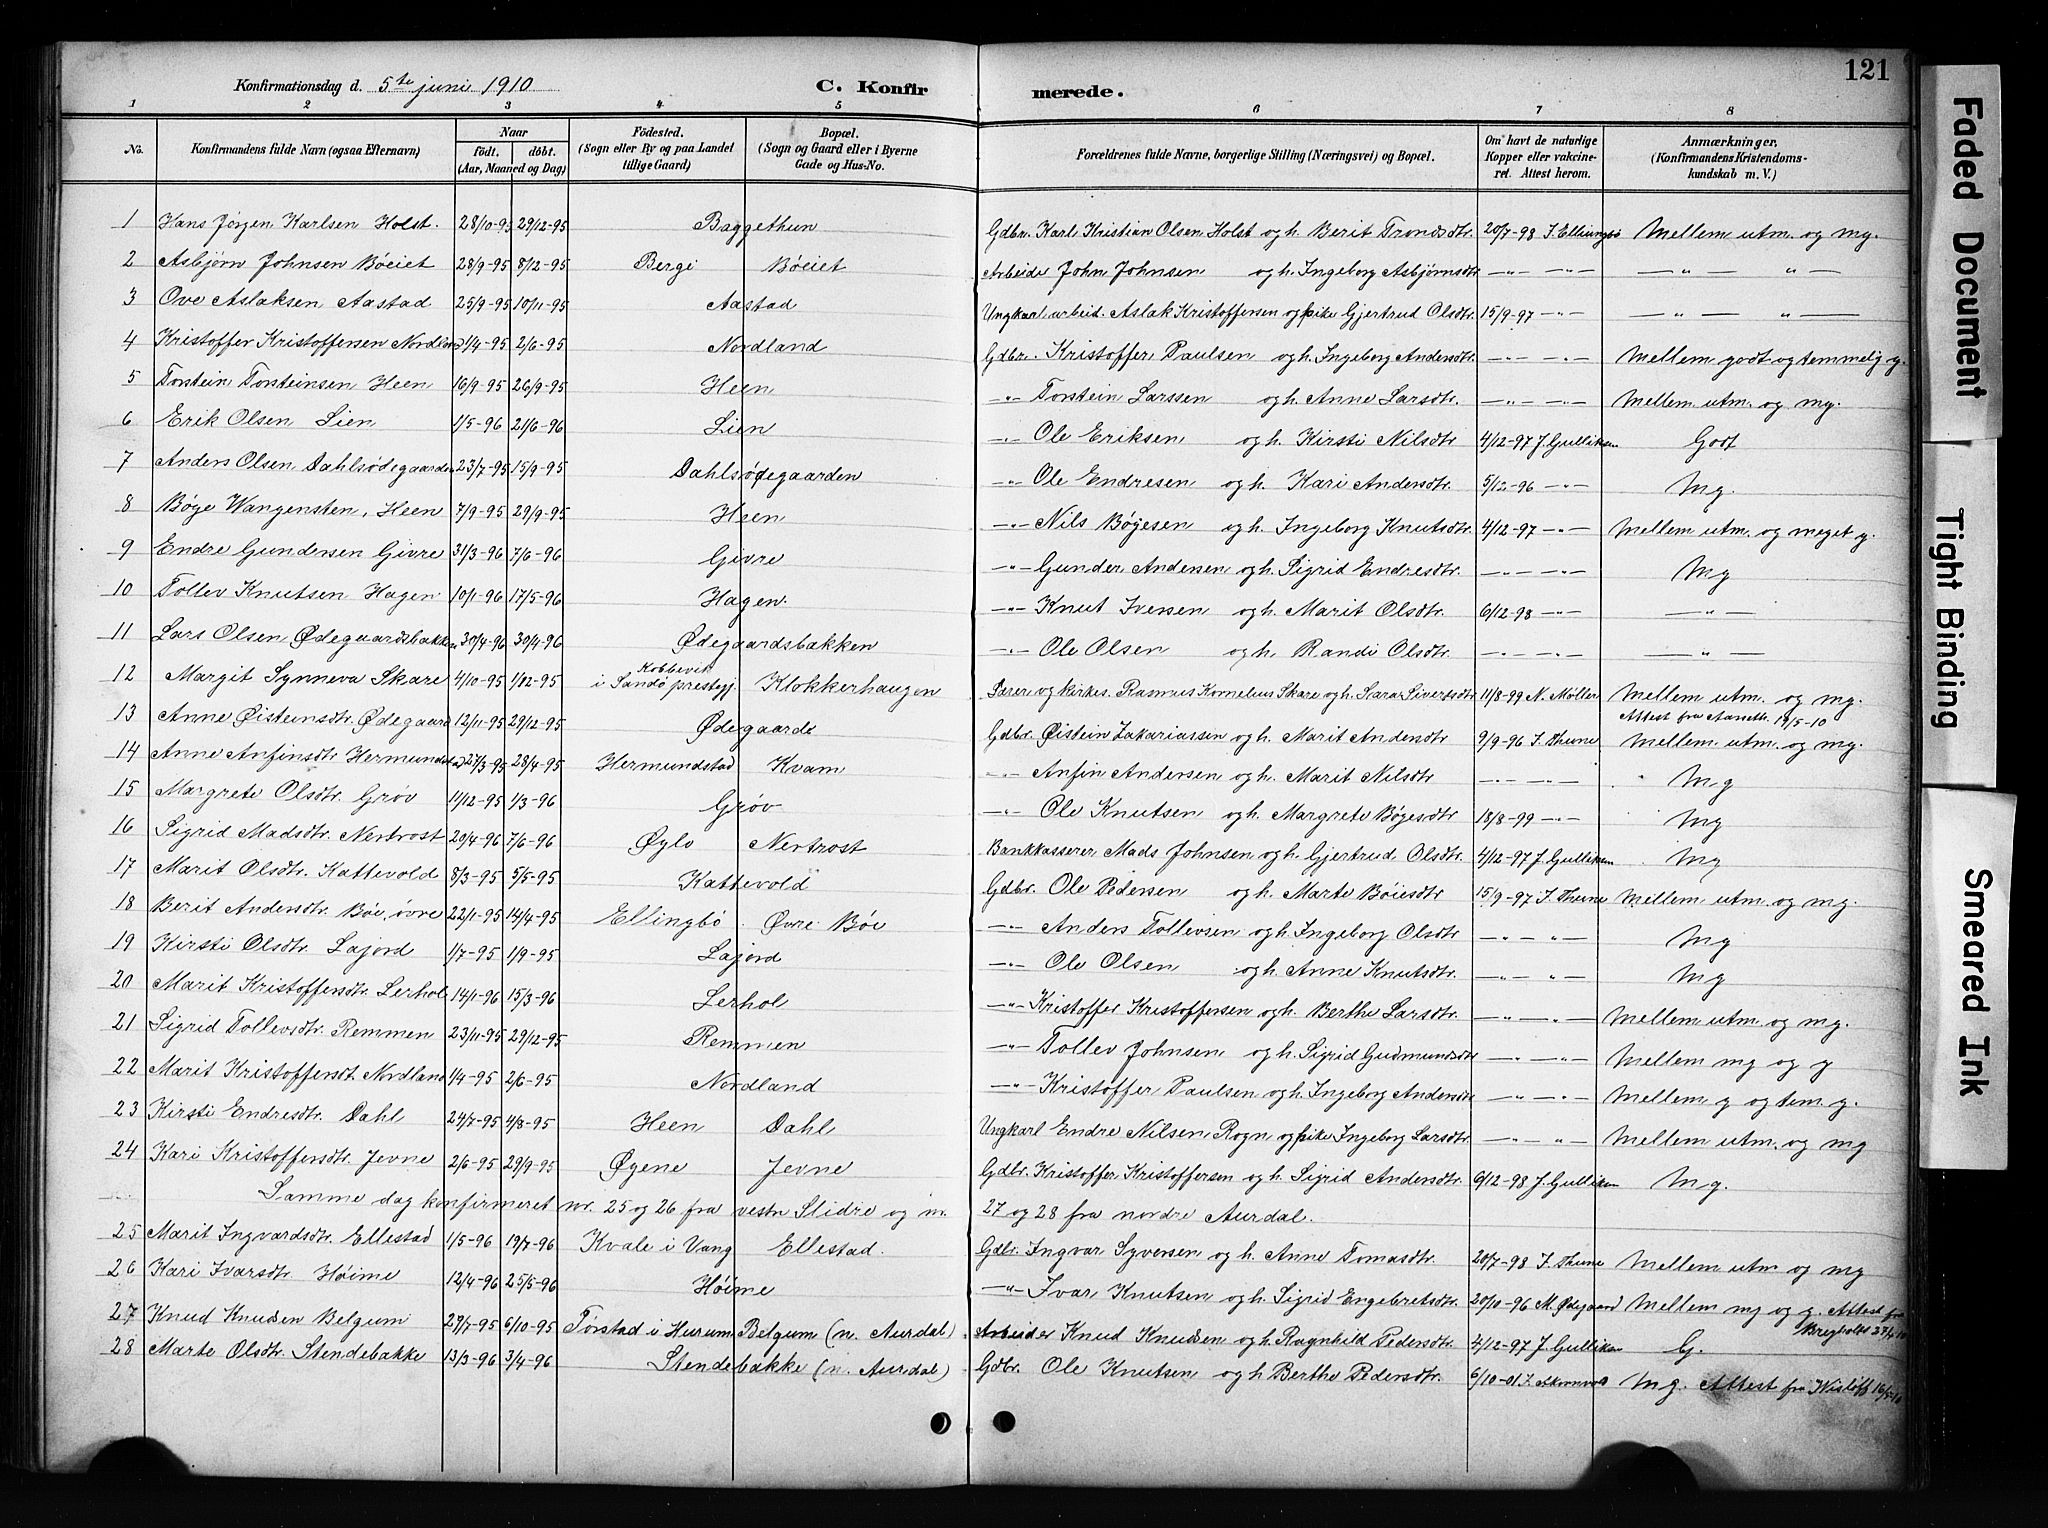 121
Konfirmationsdag d. 5te juni 1910 C. Konfirmerede.
1 2 3 4 5 6 7 8
No. Konfirmandens fulde Navn (ogsaa Efternavn) Naar født. døbt. (Aar, Maaned og Dag) Fødested. (Sogn eller By og paa Landet tillige Gaard) Bopæl. (Sogn og Gaard eller i Byerne Gade og Hus-No. Forældrenes fulde Navne, borgerlige Stilling (Næringsvei) og Bopæl. Om havt de naturlige Kopper eller vakcineret. Attest herom. Anmærkninger, (Konfirmandens Kristendomskundskab m. V.)
1 Hans Jørgen Karlsen Holst. 28/10-95 29/12-95 Baggethun Gdbr. Karl Kristian Olsen Holst og h. Berit Trondsdtr. 20/7-98 J. Ellingbø Mellem utm. og mg.
2 Asbjørn Johnsen Bøeiet 28/9-95 8/12-95 Berge Bøeiet Arbeider John Johnsen og h. Ingeborg Asbjørnsdtr —"— —"— —"— "—
3 Ove Aslaksen Aastad 25/9-95 10/11-95 Aastad Ungkarl arbeid. Aslak Kristoffersen og pike Gjertrud Olsdtr. 15/9-97 —"— —"— "—
4 Kristoffer Kristoffersen Nordland 1/4-95 2/6-95 Nordland Gdbr. Kristoffer Paulsen og h. Ingeborg Andersdtr. —"— —"— Mellem godt og temmelig g.
5 Torstein Torsteinsen Heen 16/9-95 26/9-95 Heen —"— Torstein Larssen og h. Anne Larsdtr. —"— —"— Mellem utm. og mg.
6 Erik Olsen Lien 1/5-96 21/6-96 Lien —"— Ole Eriksen og h. Kirsti Nilsdtr 4/12-97 J. Gulliksen Godt
7 Anders Olsen Dahlsødegaarden 23/7-95 15/9-95 Dahlsødegaarden —"— Ole Endresen og h. Kari Andersdtr. 5/12-96 —"— Mg.
8 Bøge Wangensten, Heen 7/9-95 29/9-95 Heen —"— Nils Bøgesen og h. Ingeborg Knutsdtr. 4/12-97 —"— Mellem utm. og meget g.
9 Endre Gundersen Givre 31/3-96 7/6-96 Givre —"— Gunder Andersen og h. Sigrid Endresdtr. —"— —"— Mg
10 Tollev Knutsen Hagen 10/1-96 17/5-96 Hagen. —"— Knut Iversen og h. Marit Olsdtr. 6/12-98 —"— —"—
11 Lars Olsen Ødegaardsbakken 30/4-96 30/4-96 Ødegaardsbakken —"— Ole Olsen og h. Randi Olsdtr. —"— —"— —"—
12 Margit Synneva Skare 4/10-95 1/12-95 Kobbevik i Sandø prestegj. Klokkerhaugen Lærer og kirkes. Rasmus Kornelius Skare og h. Sara Sivertsdtr 11/8-99 N. Møller Mellem utm. og mg. Attest fra 19/5-10
13 Anne Øisteinsdtr. Ødegaard 12/11-95 29/12-95 Ødegaard Gdbr. Øistein Zakariassen og h. Marit Andersdtr 9/9-96 J. Thune Mellem utm. og mg.
14 Anne Anfinsdtr Hermundstad 27/3-95 28/4-95 Hermundstad Kvam —"— Anfin Andersen og h. Marit Nilsdtr —"— —"— Mg
15 Margrete Olsdtr. Grøv 11/12-95 1/3-96 Grøv —"— Ole Knutsen og h. Margrete Bøgesdtr 18/8-99 —"— Mg
16 Sigrid Madsdtr. Nertrost 20/4-96 7/6-96 Øylo Nertrost Bankkasserer Mads Johnsen og h. Gjertrud Olsdtr. 4/12-97 J. Gulliksen Mg
17 Marit Olsdtr. Kattevold 8/3-95 5/5-95 Kattevold Gdbr. Ole Pedersen og h. Marte Bøiesdtr 15/9-97 J. Thune Mellem utm. og mg.
18 Berit Andersdtr. Bøe, øvre 22/1-95 14/4-95 Ellingbø Øvre Bøe —"— Anders Tollevsen og h. Ingeborg Olsdtr —"— —"— Mg
19 Kirsti Olsdtr. Lajord 1/7-95 1/9-95 Lajord —"— Ole Olsen og h. Anne Knutsdtr. —"— —"— Mg
20 Marit Kristoffersdtr. Lerhol 14/1-96 15/3-96 Lerhol —"— Kristoffer Kristoffersen og h. Berthe Larsdtr. —"— —"— Mellem utm. og mg.
21 Sigrid Tollevsdtr. Remmen 23/11-95 29/12-95 Remmen —"— Tollev Johnsen og h. Sigrid Gudmundsdtr —"— —"— Mellem mg og g
22 Marit Kristoffersdt. Nordland 1/4-95 2/6-95 Nordland —"— Kristoffer Paulsen og h. Ingeborg Andersdtr —"— —"— Mellem g og tem. g.
23 Kirsti Endresdtr. Dahl 24/7-95 4/8-95 Heen Dahl Ungkarl Endre Nilsen Rogn og pike Ingeborg Larsdtr. —"— —"— Mellem utm. og mg
24 Kari Kristoffersdtr. Jevne 2/6-95 29/9-95 Øyene Jevne Gdbr. Kristoffer Kristoffersen og h. Sigrid Andersdtr. 6/12-98 J. Gulliksen Mg.
Samme dag konfirmeret nr. 25 og 26 fra vestre Slidre og nr. 27 og 28 fra nordre Aurdal.
25 Marit Ingvardsdtr. Ellestad 1/5-96 19/7-96 Kvale i Vang Ellestad. Gdbr. Ingvar Syversen og h. Anne Tomasdtr. 20/7-98 J. Thune Mellem utm og mg
26 Kari Ivarsdtr. Høime 12/4-96 25/5-96 Høime —"— Ivar Knutsen og h. Sigrid Engebretsdtr. 20/10-96 M. Ødegaard Mellem mg og g. Attest fra
27 Knud Knudsen Belgum 29/7-95 6/10-95 Tørstad i Hurum Belgum (n. Aurdal) Arbeider Knud Knudsen og h. Ragnhild Pedersdtr. 4/12-97 J. Gulliksen G.
28 Marte Olsdtr. Stendebakke 13/3-96 3/4-96 Stendebakke (n. Aurdal) Gdbr. Ole Knutsen og h. Berthe Pedersdtr. 6/10-01 Mg. Attest fra Wisløff 16/5-10
Faded Document
Tight Binding
Smeared Ink